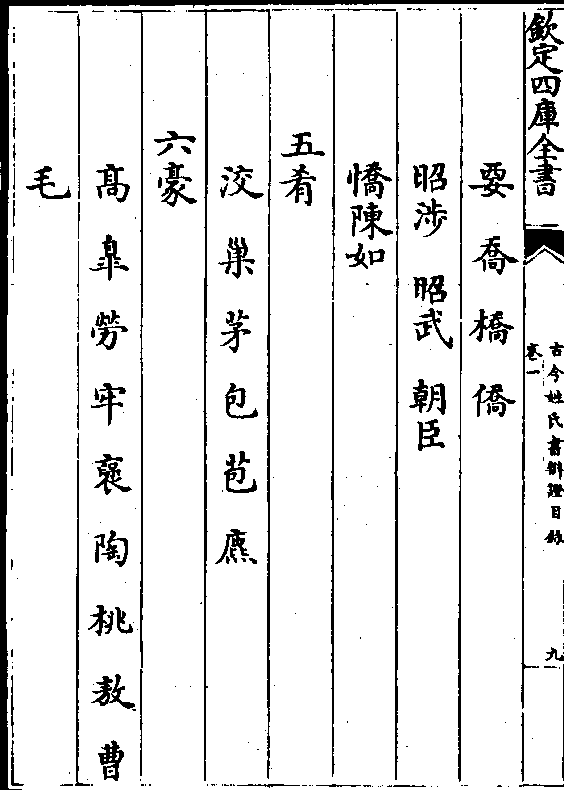 欽定四庫全書
古今姓氏書辯證目錄
卷一
九
㛐 喬 橋 僑
昭涉 昭武 朝臣
憍陳如
五肴
洨 巢 茅 包 苞 麃
六豪
高 臯 勞 牢 裒 陶 桃 敖 曹
毛